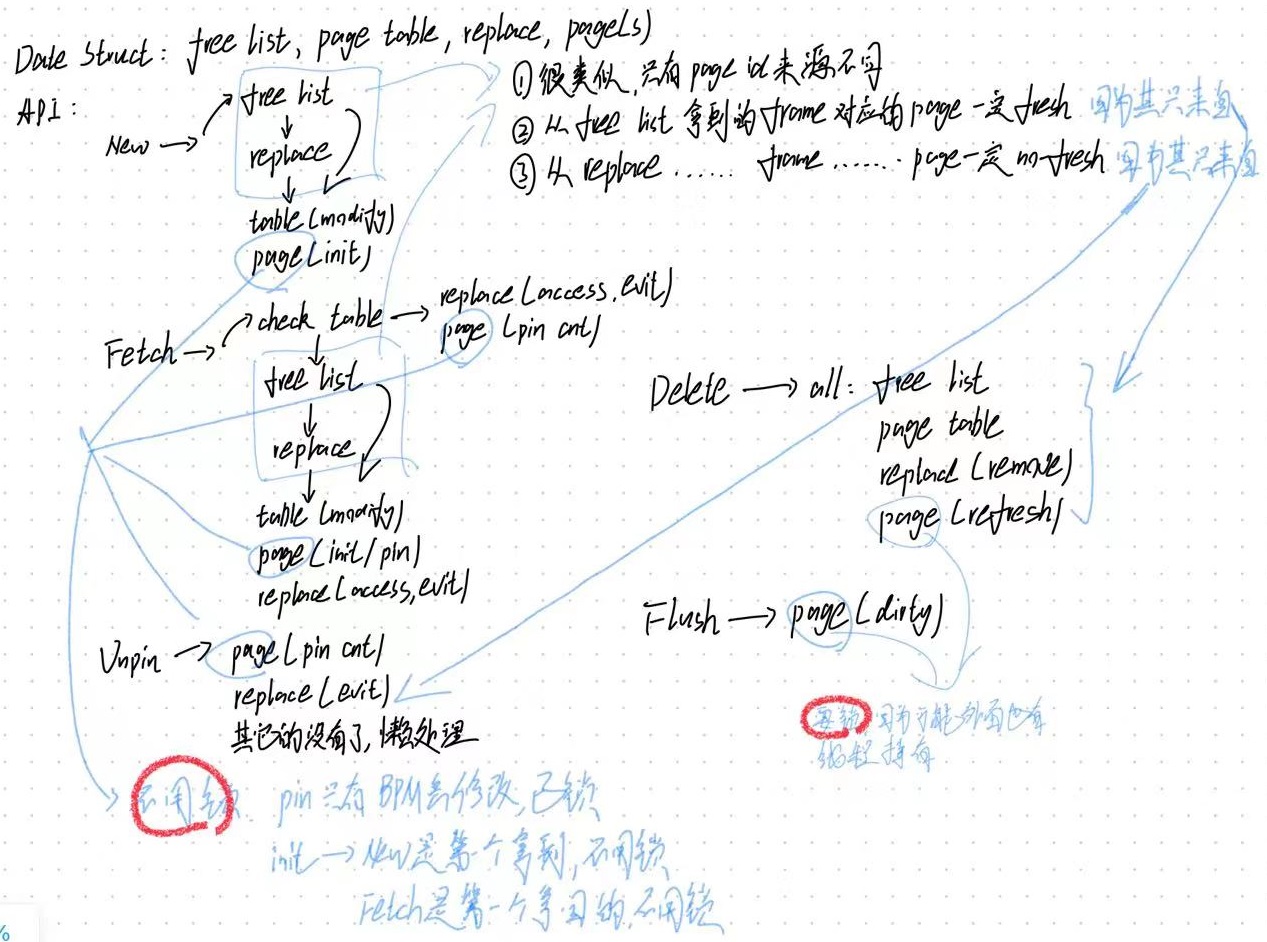 Date Struct: free list, page table, replace, page(s)
API:
New → free list
replace
table (modify)
page (init)
① 很类似, 只有 page id 来源不同
② 从 free list 拿到的 frame 对应的 page 一定 fresh 因为其只来自
③ 从 replace ...... frame ....... page 一定 no-fresh 因为其只来自
Fetch → check table → replace (access, evit)
page (pin cnt)
free list
replace
table (modify)
page (init/pin)
replace (access, evit)
Unpin → page (pin cnt)
replace (evit)
其它的没有了, 懒处理
Delete → all: free list
page table
replace (remove)
page (refresh)
Flush → page (dirty)
要锁 因为可能外面也有
线程持有
不用锁: pin 只有 BPM 会修改, 已锁
init → New是第一个拿到, 不用锁
Fetch是第一个拿回的, 不用锁
%